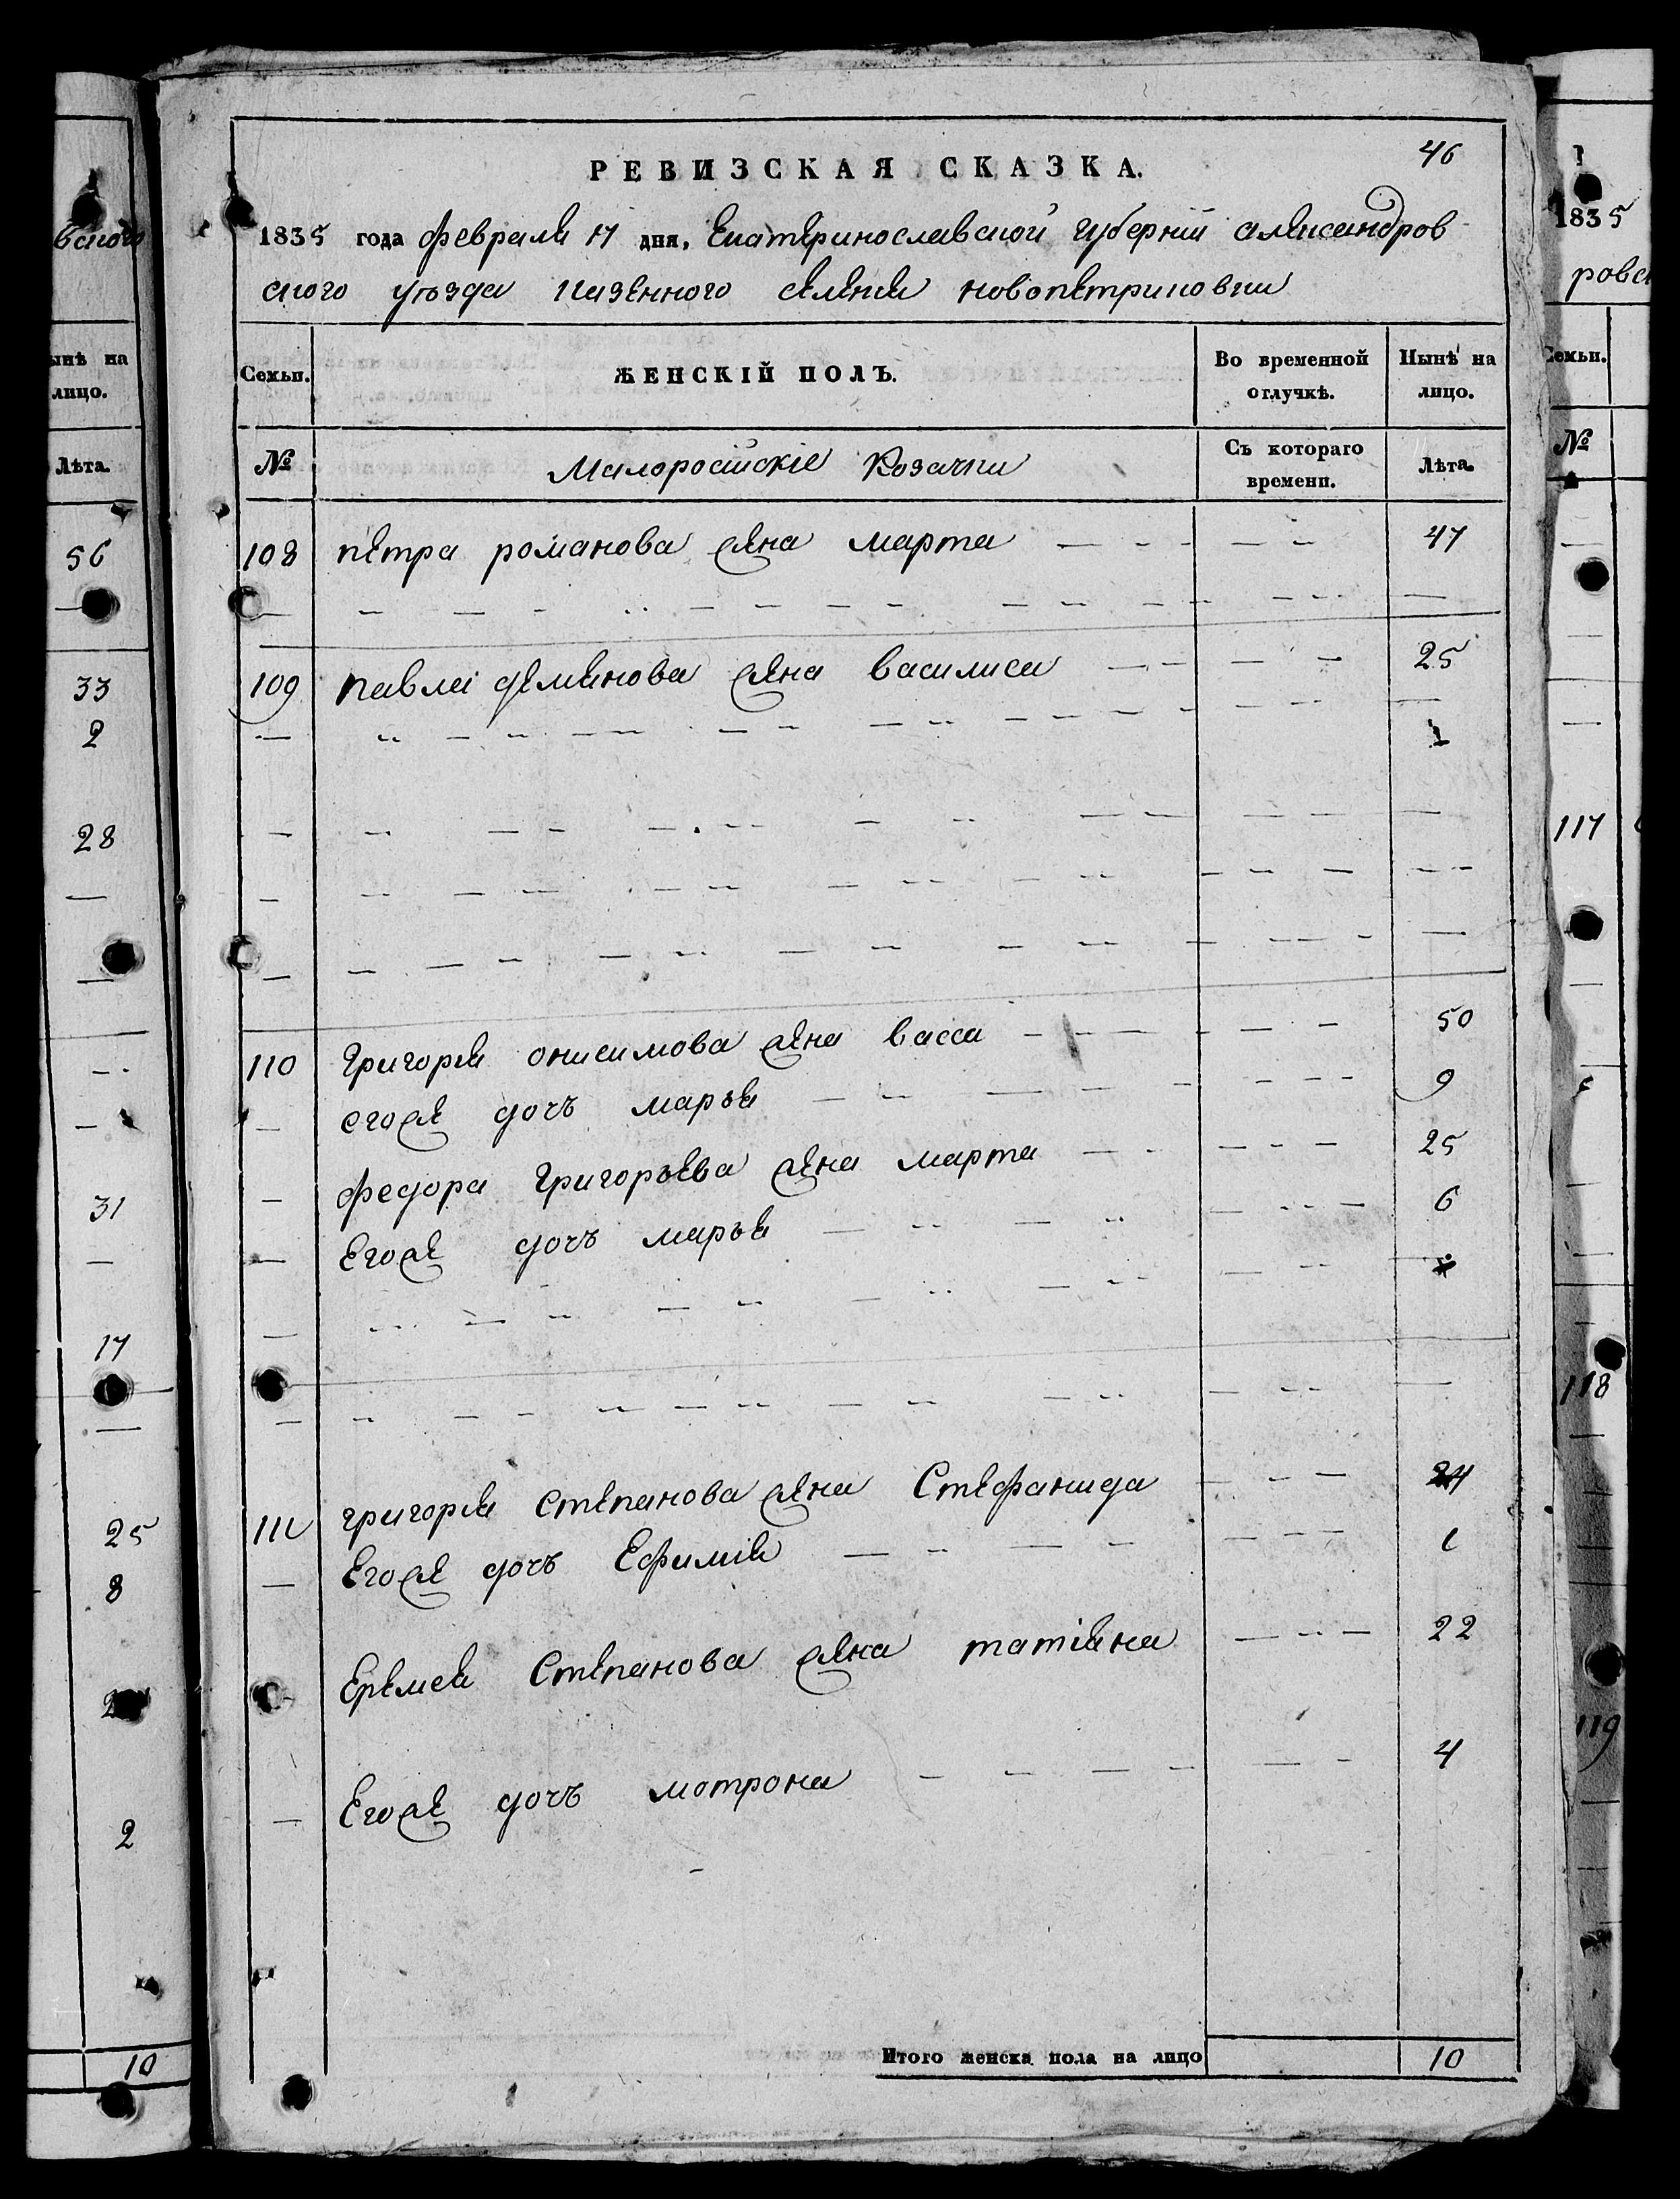 46
РЕВИЗСКАЯ СКАЗКА.
1835 года февраля 17 дня, Екатеринославской губерніи александров
ского уѣзда казенного селенія новопетриковки
Семьи. ЖЕНСКІЙ ПОЛЪ. Во временной отлучкѣ. Нынѣ на лицо.
№ Малоросійскіе Козачки Съ котораго времени. Лѣта.
108 петра романова жена марта 47
109 павла деминова жена василиса 25
1
110 Григорія онисимова жена васса 50
егоже дочъ марья 9
федора Григорьева жена марта 25
Егоже дочъ марья 6
111 григорія степанова жена Стефанида 24
Егоже дочъ Ефимія 1
Еремея Степанова жена татіяна 22
Егоже дочъ мотрона 4
Итого женска пола на лицо 10
ынѣ на
лицо.
Лѣта.
56
33
2
28
31
17
25
8
2
10
1835
ровск
Семьи.
№
117
118
119